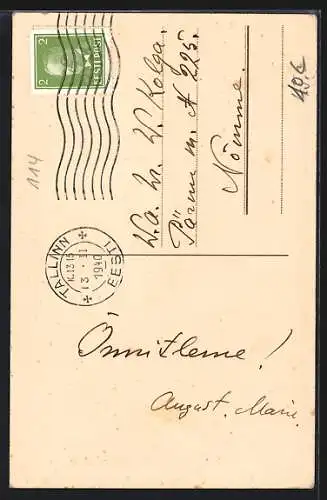 2 2
EESTI POST
TALLINN
EESTI
13 · II
1940
114
W. Kolga.
Pärnu m. № 225.
Nõmme.
Õnnitleme!
August, Marie